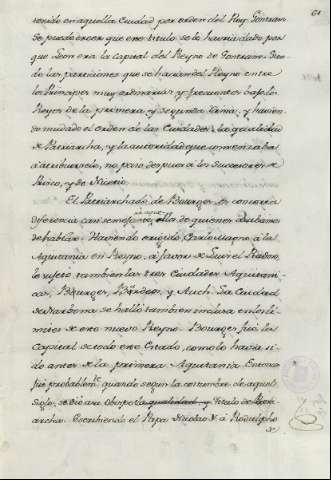 tenido en aquella Ciudad por orden del Rey Gontran.
Se puede creer que este titulo se le havria dado por
que Leon era la capital del Reyno de Gontran. Sien-
do las particiones que se hacian del Reyno entre
los Principes muy ordinarias, y frequentes baxo los
Reyes de la primera, y segunda linea, y havien-
do mudado el orden de las Ciudades, la qualidad
de Patriarcha, y la autoridad que comenzaba
á atribuirsele, no paso despues á los Successores de
Prisco, y de Nicecio.
El Patriarchado de Bourges, es con corta
diferencia casi semejante, al de aquel de quienes acabamos
de hablar. Haviendo erigido Carlo Magno á la
Aquitania en Reyno, á favor de Luis el Piadoso,
le sujetó tambien las tres Ciudades Aquitani-
cas, Bourges, Bordeos, y Auch. La Ciudad
de Narbona se halló tambien inclusa en los li-
mites de este nuevo Reyno. Bourges fué la
Capital de todo este Estado, como lo havia si-
do antes de la primera Aquitania. Entonces
fué probablem.te quando segun la costumbre de aquel
siglo, se dió á su Obispo la qualidad, y titulo de Patri-
archa. Escribiendo el Papa Nicolao I. á Rodulpho